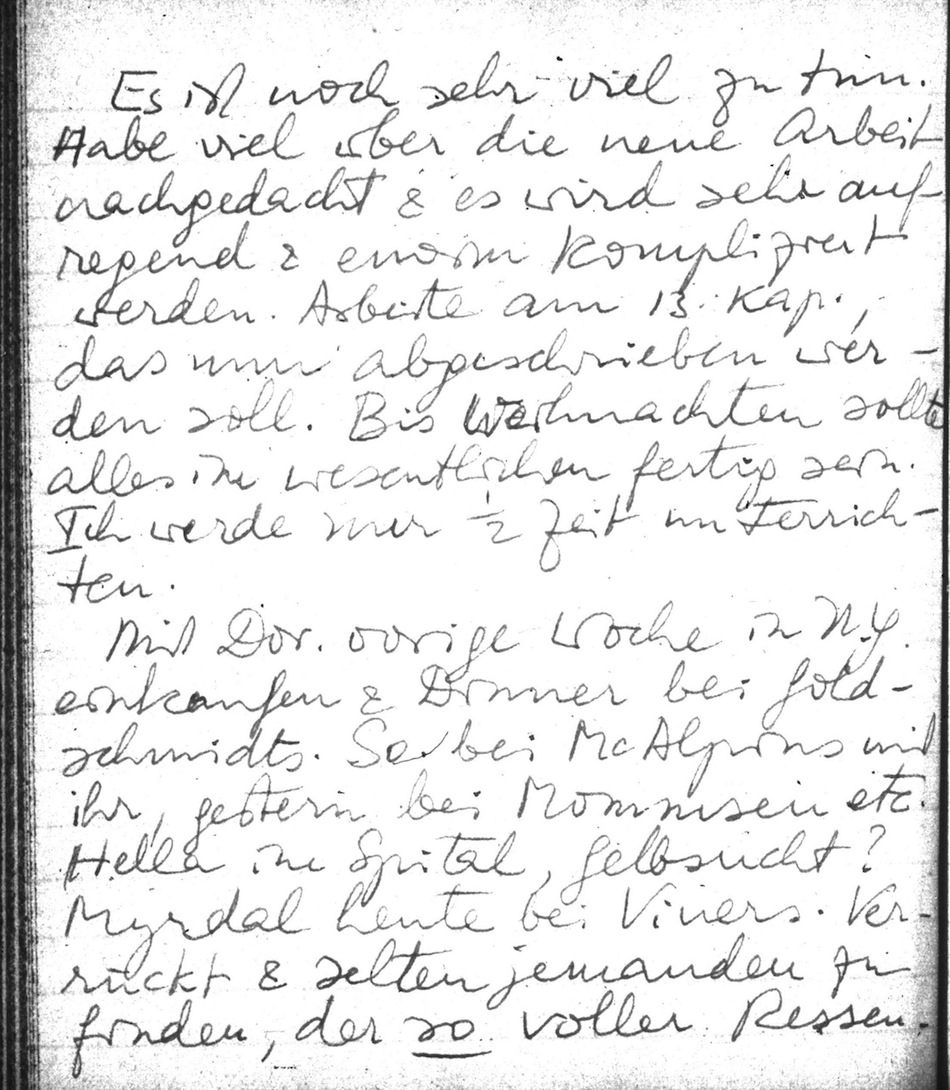 Es ist noch sehr viel zu tun.
Habe viel über die neue Arbeit
nachgedacht & es wird sehr auf-
regend & enorm kompliziert
werden. Arbeite am 13. Kap.,
das nun abgeschrieben wer-
den soll. Bis Weihnachten sollte
alles im wesentlichen fertig sein.
Ich werde nur ½ Zeit unterrich-
ten.
Mit Dor. vorige Woche in N.Y.
einkaufen & Dinner bei Gold-
schmidts. Sa bei McAlpins mit
ihr, gestern bei Mommsen etc.
Hella im Spital, Gelbsucht?
Myrdal heute bei Viners. Ver-
rückt & selten jemanden zu
finden, der so voller Ressen-